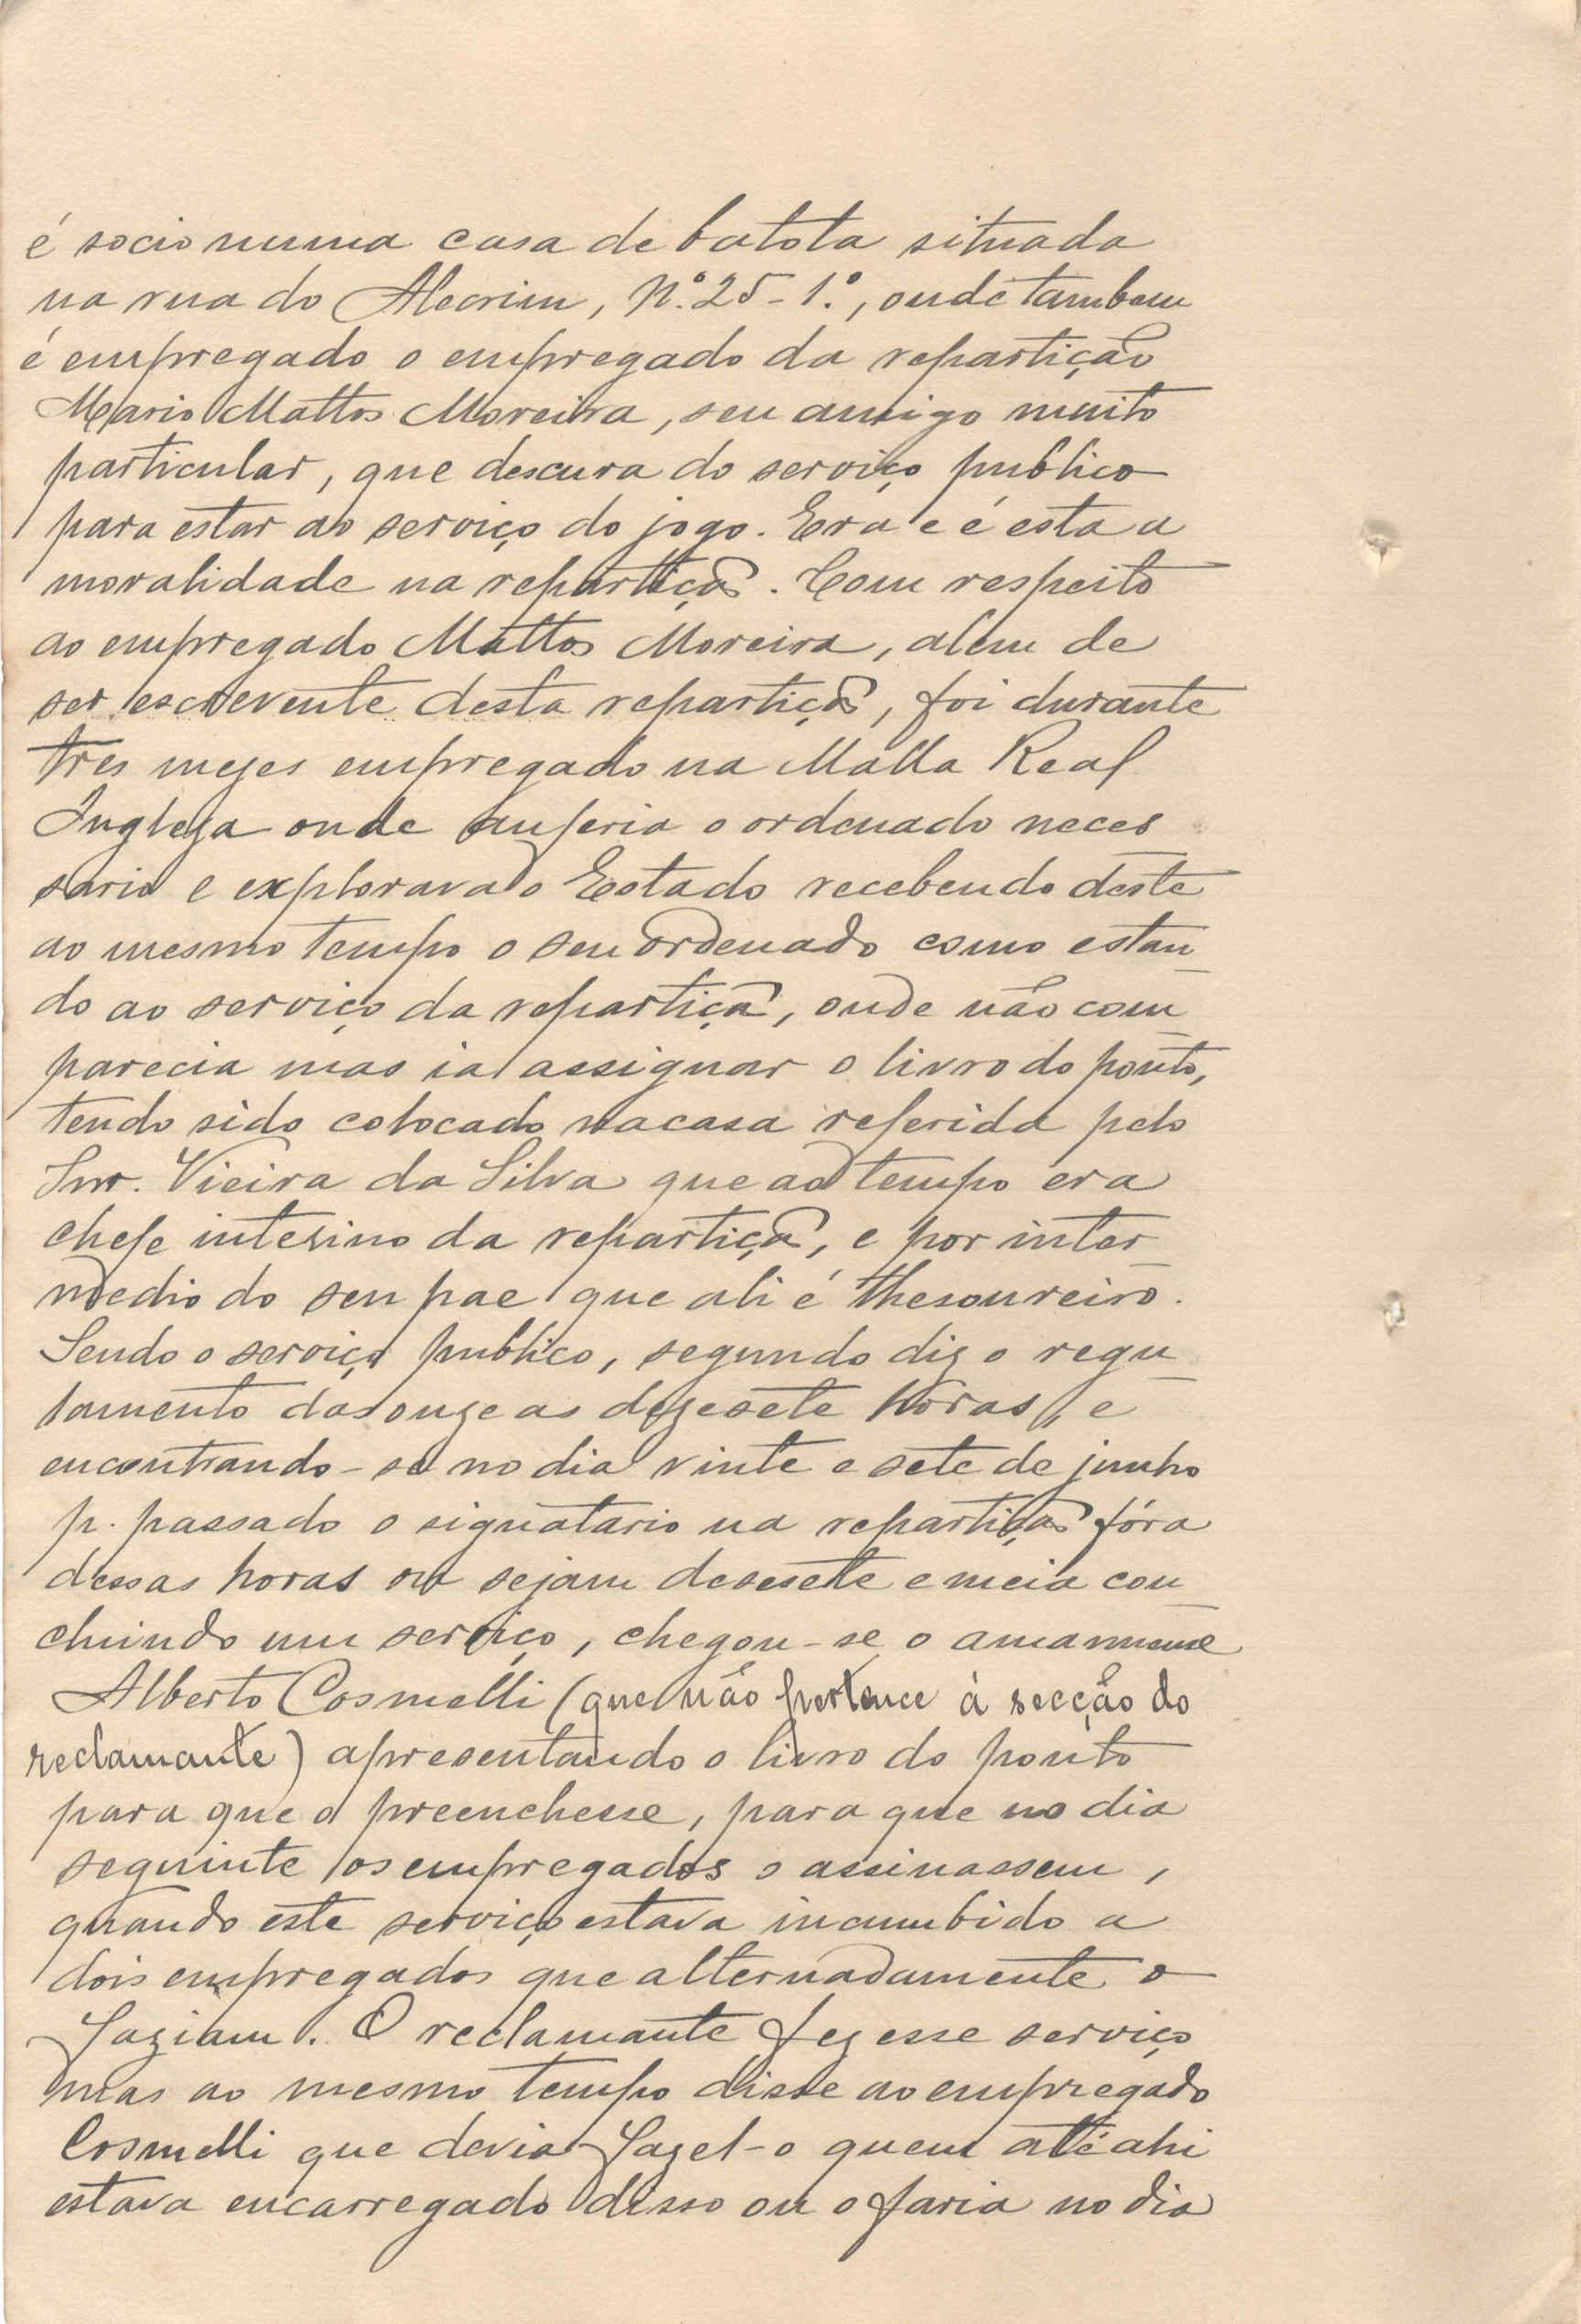 é socio numa casa de batota situada
na rua do Alecrim, Nº. 25-1.º, onde tambem
é empregado o empregado da repartição
Mario Mattos Moreira, seu amigo muito
particular, que descura do serviço publico
para estar ao serviço do jogo. Era e é esta a
moralidade na repartição. Com respeito
ao empregado Mattos Moreira, alem de
ser escrevente desta repartição, foi durante
tres mezes empregado na Malla Real
Ingleza onde auferia o ordenado neces
sario e explorava o Estado recebendo deste
ao mesmo tempo o seu ordenado como estan
do ao serviço da repartição, onde não com
parecia mas ia assignar o livro do ponto,
tendo sido colocado na casa referida pelo
Snr. Vieira da Silva que ao tempo era
chefe interino da repartição, e por inter
medio do seu pae que ali é thesoureiro.
Sendo o serviço publico, segundo diz o regu
lamento das onze as dezesete horas, e
encontrando-se no dia vinte e sete de junho
p. passado o signatario na repartição fóra
dessas horas ou sejam desesete e meia con
cluindo um serviço, chegou-se o amanuense
Alberto Cosmelli (que não pertence à secção do
reclamante) apresentando o livro do ponto
para que o preenchesse, para que no dia
seguinte os empregados o assinassem,
quando este serviço estava incumbido a
dois empregados que alternadamente o
faziam. O reclamante fez esse serviço
mas ao mesmo tempo disse ao empregado
Cosmelli que devia fazel-o quem até ahi
estava encarregado disso ou o faria no dia